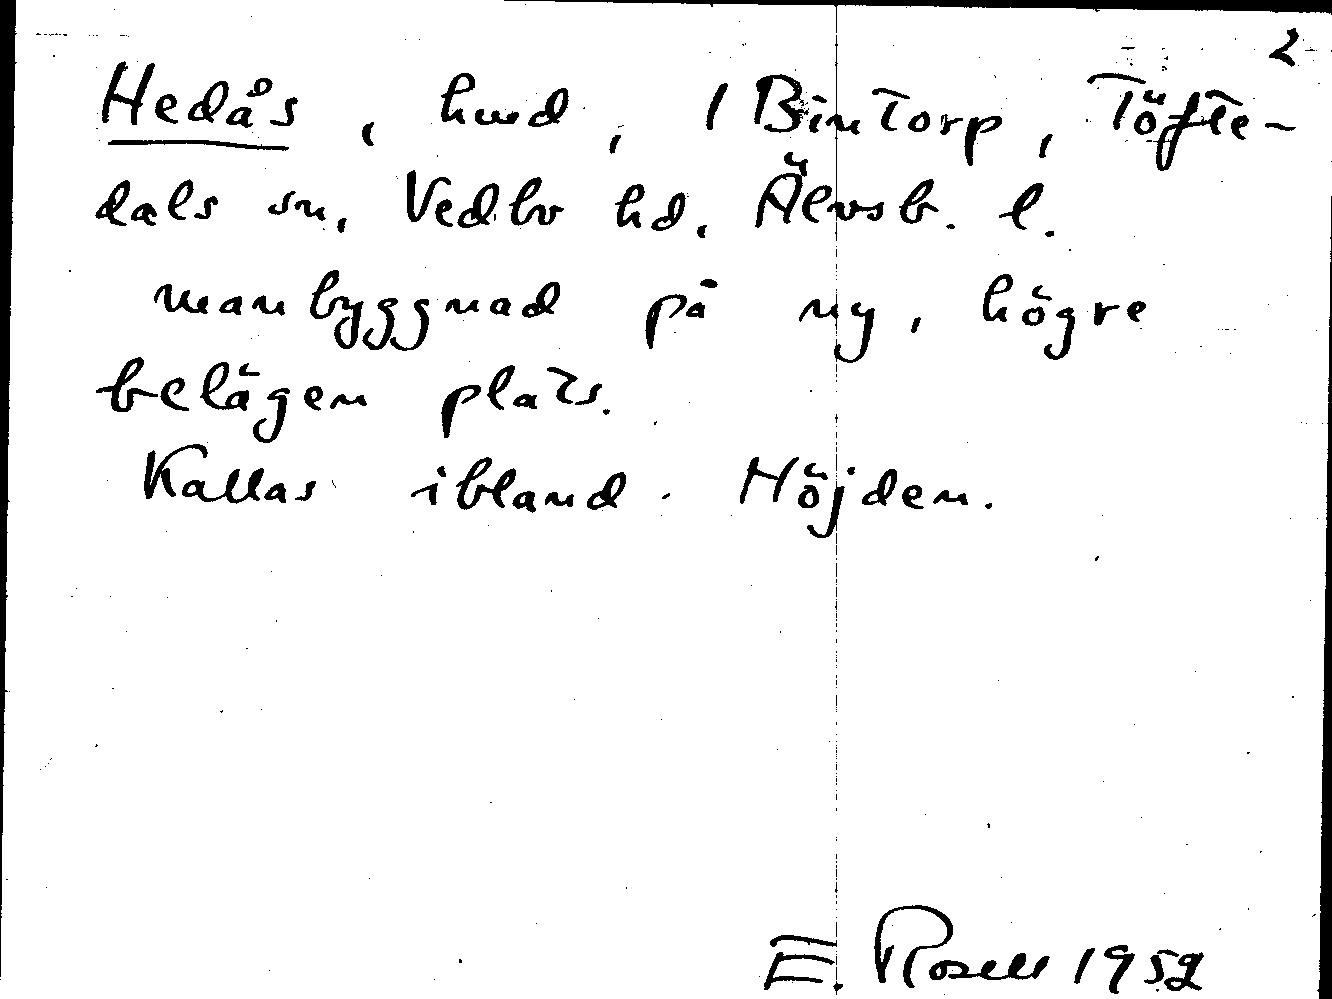 2
Hedås, hmd, 1 Bintorp, Töfte-
dals sn, Vedbo hd, Älvsb. l.
manbyggnad på ny, högre
belägen plats.
Kallas ibland Höjden.
E. Rosell 1952